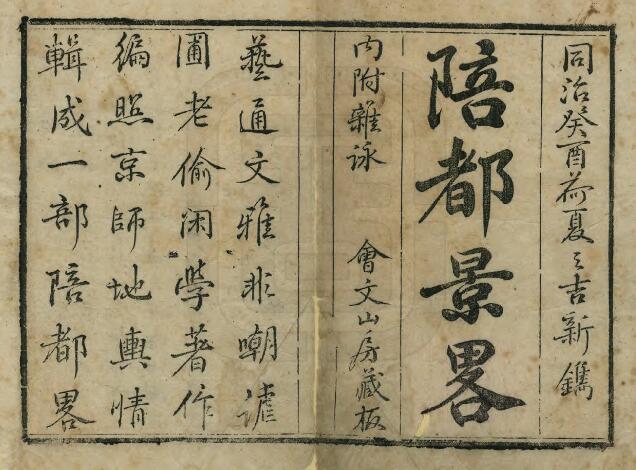 同治癸酉荷夏之吉新鐫
陪都景畧
內附雜詠 會文山房藏板
藝通文雅非嘲謔
圃老偷闲學著作
编照京師地輿情
輯成一部陪都畧